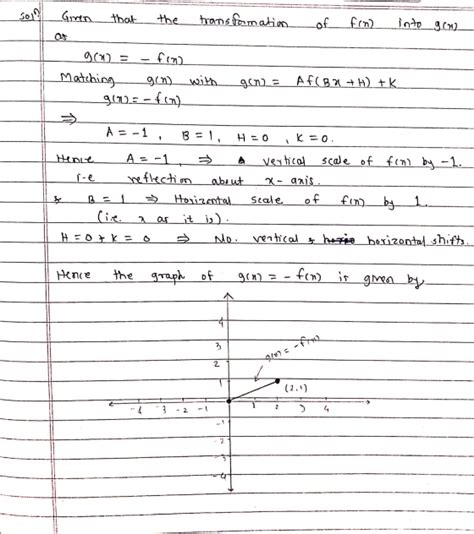 Solⁿ Given that the transformation of f(x) into g(x)
as
g(x) = - f(x)
Matching g(x) with g(x) = Af(Bx+H)+K
g(x) = - f(x)
⇒
A = -1, B = 1, H = 0, K = 0.
Hence A = -1, ⇒ vertical scale of f(x) by -1.
i.e reflection about x-axis.
& B = 1 ⇒ Horizontal scale of f(x) by 1.
(i.e. x as it is).
H = 0 & K = 0 ⇒ No. vertical & horizontal shifts.
Hence the graph of g(x) = - f(x) is given by
4
3
g(x) = -f(x)
2
1
(2,1)
-4 -3 -2 -1 1 2 3 4
-1
-2
-3
-4